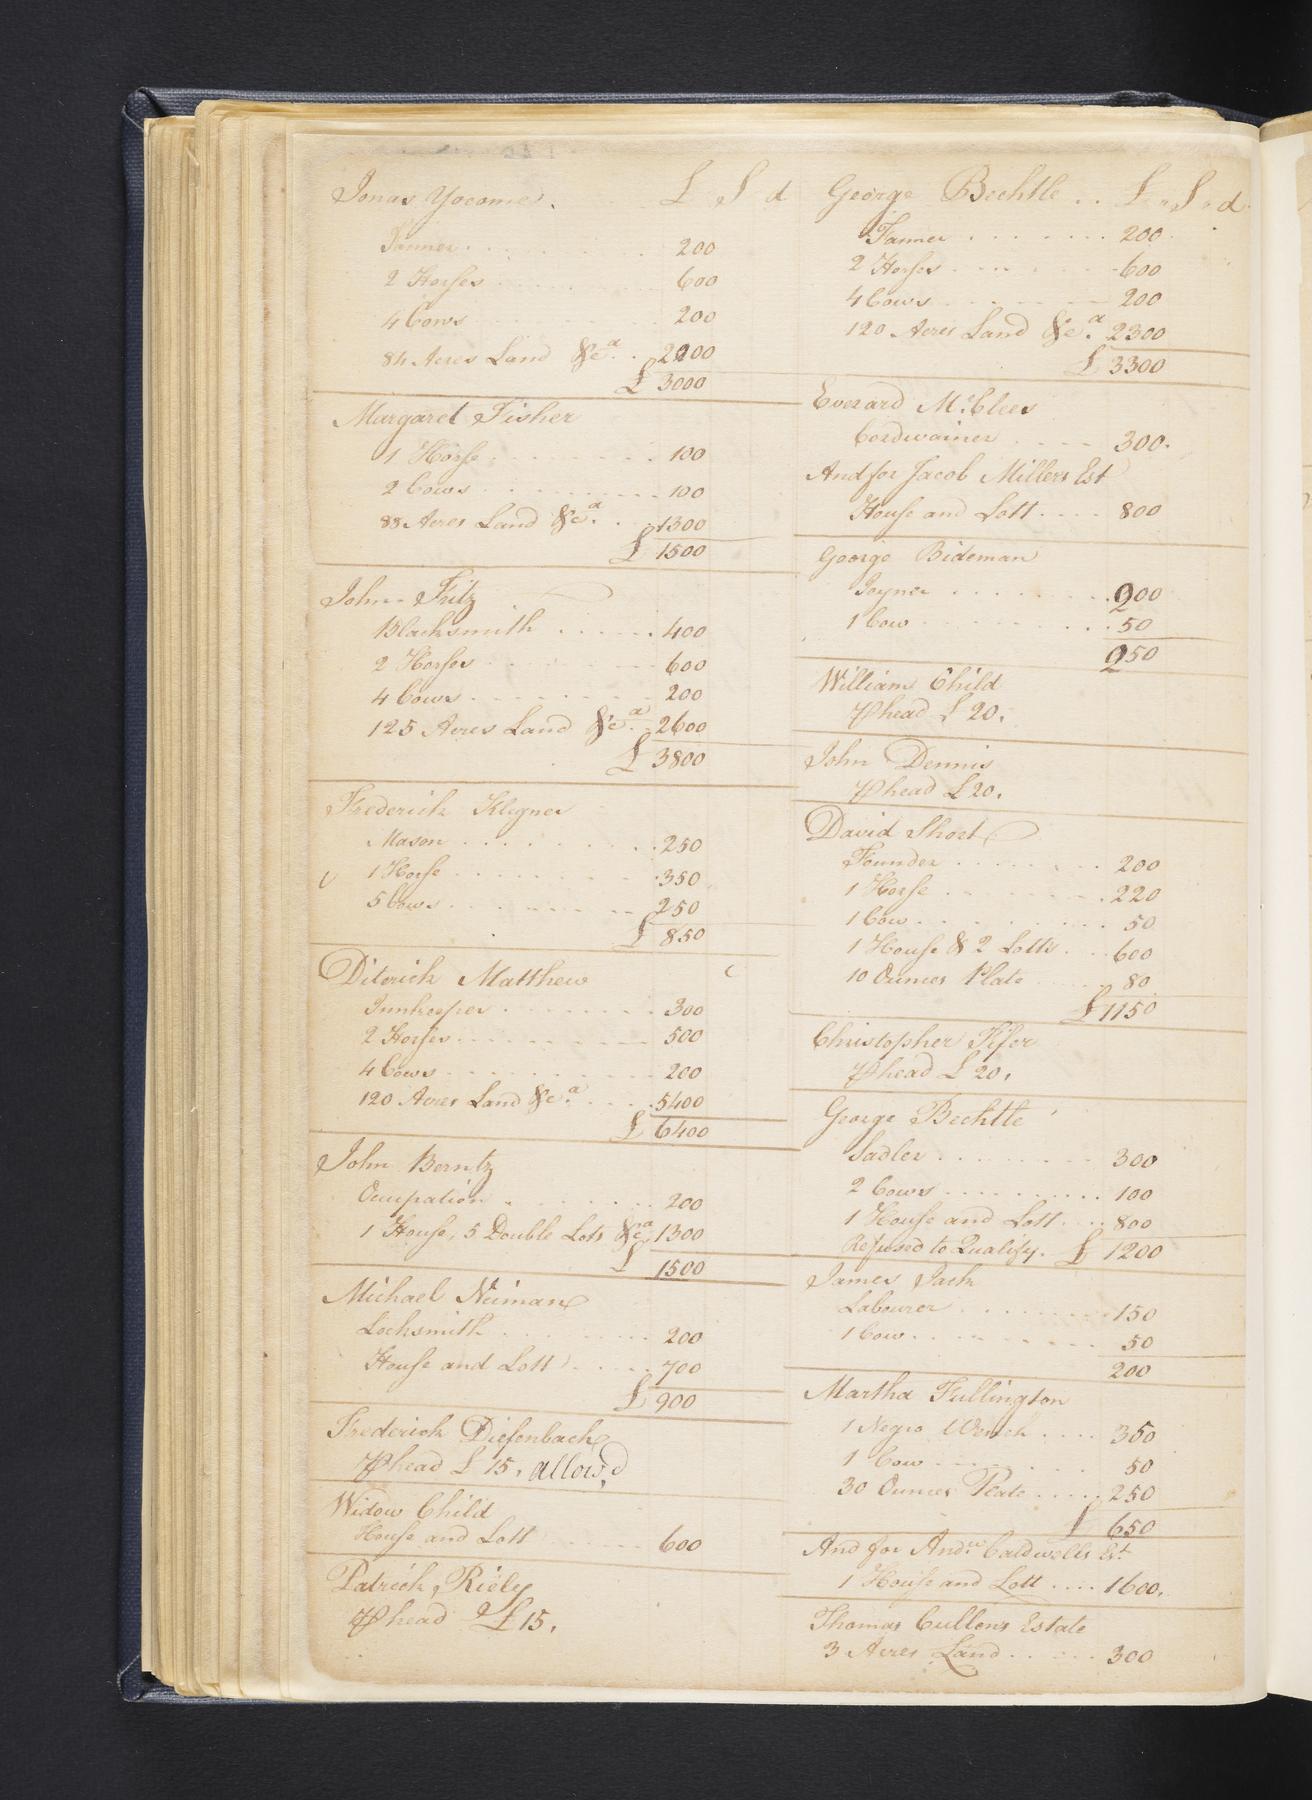 Jonas Yocome. £ S d
Tanner 200
2 Horses 600
4 Cows 200
84 Acres Land &c.a 2000
£ 3000
Margaret Fisher
1 Horse 100
2 Cows 100
88 Acres Land &c.a 1300
£ 1500
John Fritz
Blacksmith 400
2 Horses 600
4 Cows 200
125 Acres Land &c.a 2600
£ 3800
Frederick Kligner
Mason 250
1 Horse 350
5 Cows 250
£ 850
Diterick Matthew
Innkeeper 300
2 Horses 500
4 Cows 200
120 Acres Land &c.a 5400
£ 6400
John Berntz
Ocupation 200
1 House, 5 Double Lots &c.a 1300
£ 1500
Michael Neiman
Locksmith 200
House and Lott 700
£ 900
Frederick Diefenbach
⅌ head £ 15, allow'd
Widow Child
House and Lott 600
Patrick Riely
⅌ head £15,
George Bechtle £ S d
Tanner 200
2 Horses 600
4 Cows 200
120 Acres Land &c.a 2300
£ 3300
Everard Mc.Clees
Cordwainer 300.
And for Jacob Millers Est
House and Lott 800
George Bideman
Joyner 200
1 Cow 50
250
William Child
⅌ head £ 20,
John Dennis
⅌ head £ 20,
David Short
Founder 200
1 Horse 220
1 Cow 50
1 House & 2 Lotts 600
10 Ounces Plate 80
£ 1150
Christopher
⅌ head £ 20,
George Bechtle
Sadler 300
2 Cows 100
1 House and Lott 800
Refused to Qualify. £ 1200
James Jack
Labourer 150
1 Cow 50
200
Martha Fullington
1 Negro Wench 350
1 Cow 50
30 Ounces Plate 250
£ 650
And for Andw. Caldwells Est
1 House and Lott 1600,
Thomas Cullens Estate
3 Acres Land 300